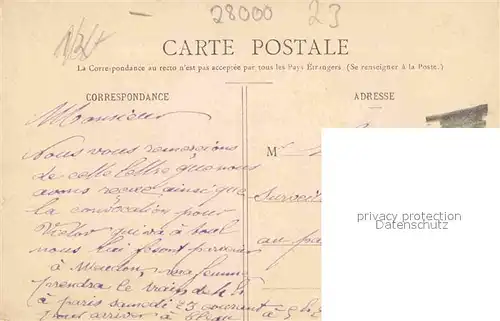 28000 23
1/3t
CARTE POSTALE
La Correspondance au recto n'est pas acceptée par tous les Pays Étrangers. (Se renseigner à la Poste.)
CORRESPONDANCE
ADRESSE
Monsieur
Nous vous remercions
de cette lettre que nous
avons reçue ainsi que
la convocation pour
Victor qui va à
nous lui ferons parvenir
à Meudon, ma femme
prendra le train de
à paris samedi 23 courant à 5h
pour arriver à
M
Surveil
au pa
privacy protection
www.oldthing.de